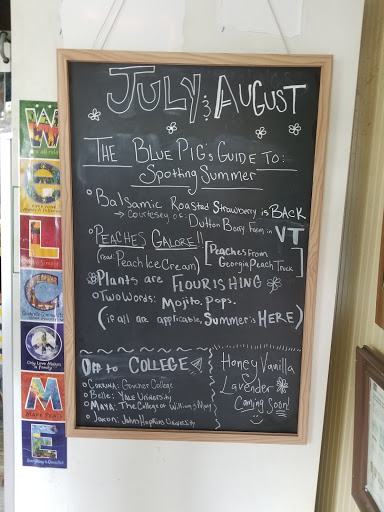 JULY & AUGUST
THE BLUE PIG's GUIDE TO:
Spotting Summer
Balsamic Roasted Strawberry is BACK
→ courtesy of: Dutton Berry Farm in VT
PEACHES GALORE!!
(read: Peach Ice Cream)
[Peaches from Georgia Peach Truck]
Plants are FLOURISHING
Two Words: Mojito. Pops.
(if all are applicable, Summer is HERE)
OFF TO COLLEGE
Corinna: Goucher College
Belle: YALE University
MAYA: The College of William & Mary
Jason: Johns Hopkins University
Honey Vanilla
Lavender
Coming Soon!
W
E
L
C
O
M
E
Only Love Makes
a Family
Make Peace